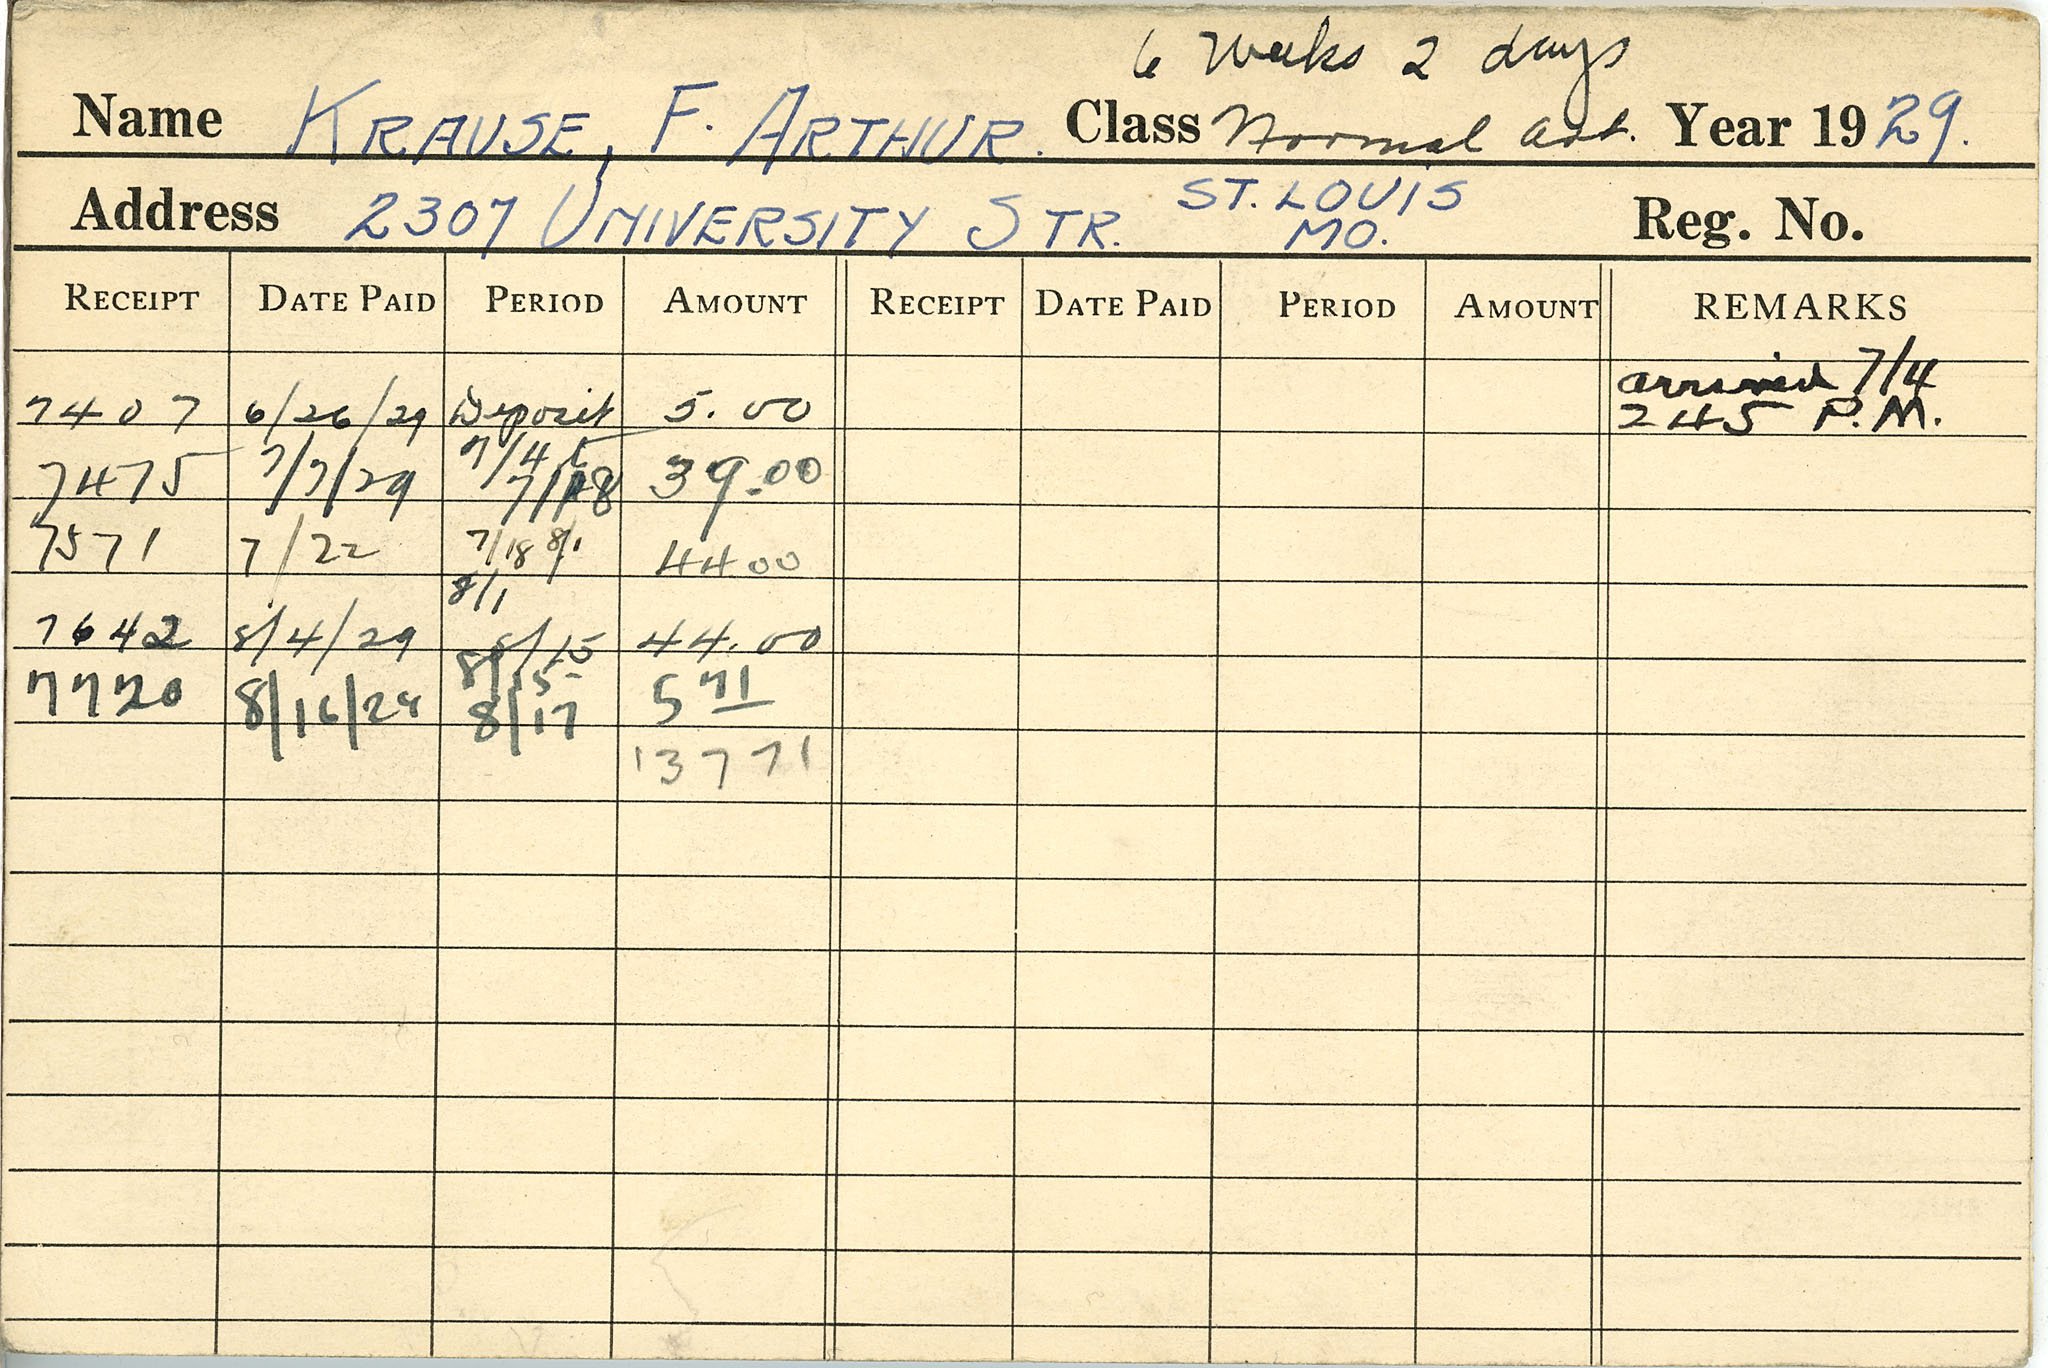 6 Weeks 2 days
Name KRAUSE, F. ARTHUR. Class Normal Art. Year 1929.
Address 2307 UNIVERSITY STR. ST. LOUIS MO. Reg. No.
RECEIPT DATE PAID PERIOD AMOUNT RECEIPT DATE PAID PERIOD AMOUNT REMARKS
7407 6/26/29 Deposit 5.00 arrived 7/4
245 P.M.
7475 7/7/29 7/4 7/18 39.00
7571 7/22 7/18 8/1 44 00
7642 8/4/29 8/1 8/15 44.00
7720 8/16/29 8/15 8/17 5 71
137 71